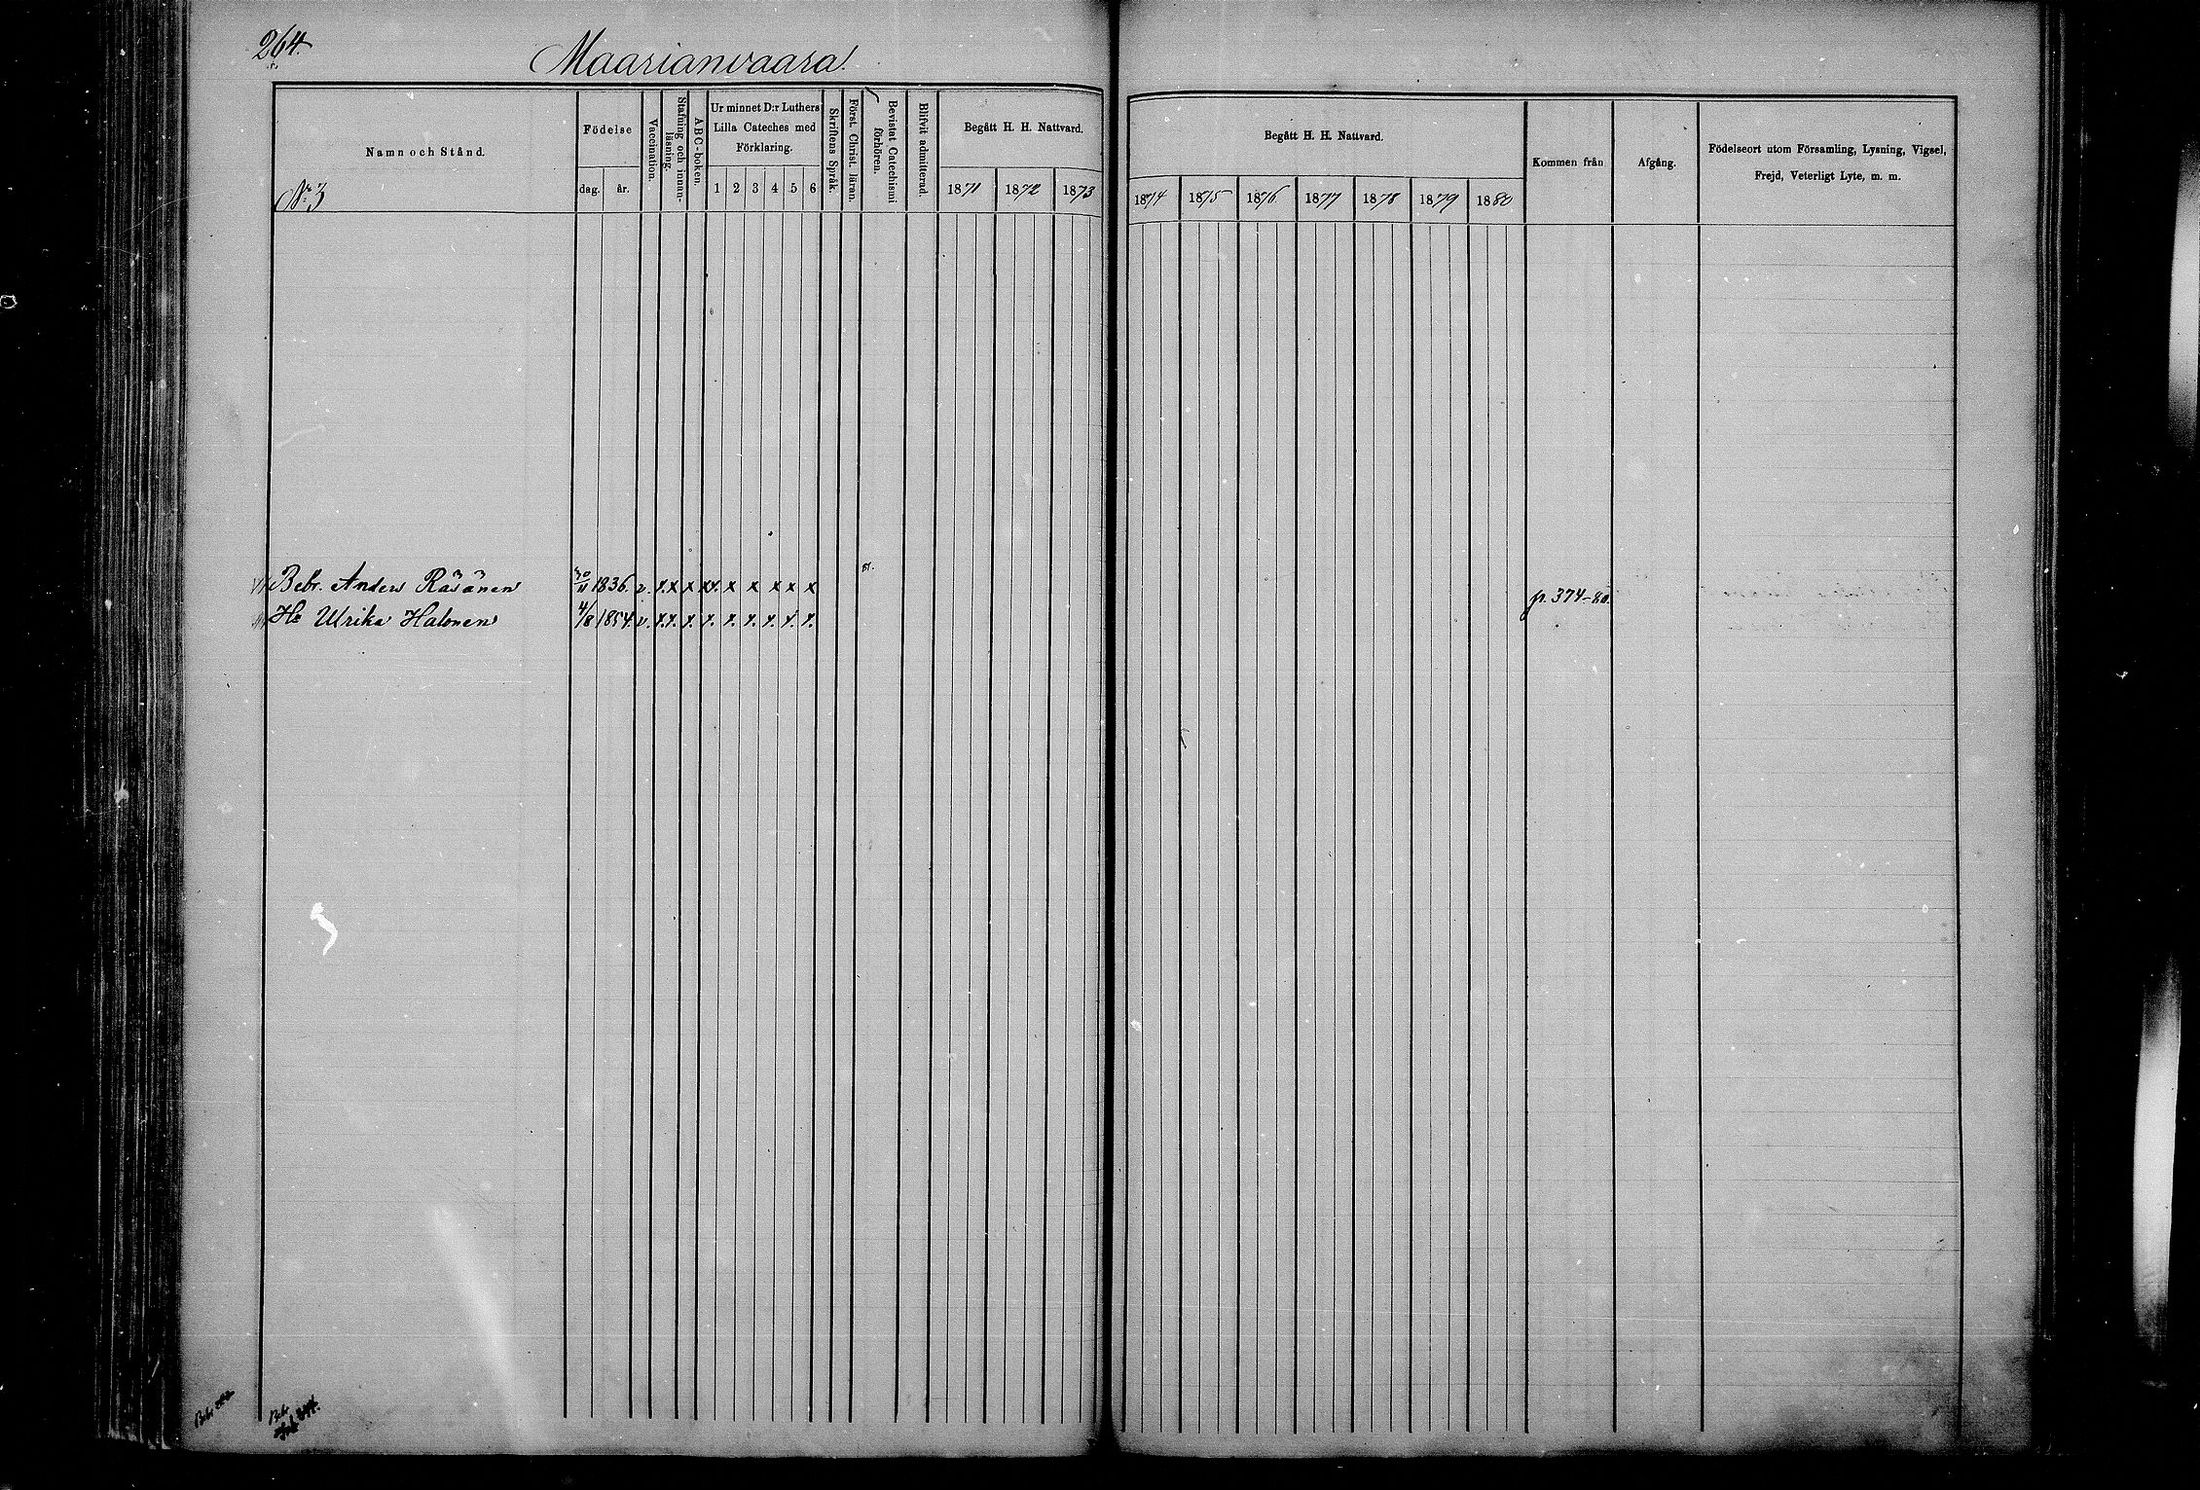 264.
Maarianvaara.
Namn och Stånd.
Födelse
dag. år.
Vaccination.
Stafning och innan-läsning.
ABC-boken.
Ur minnet D:r Luthers
Lilla Cateches med
Förklaring.
1 2 3 4 5 6
Skriftens Språk.
Först. Christ. läran.
Bevistat Catechismi
förhören.
Blifvit admitterad.
Begått H. H. Nattvard.
1871 1872 1873
Begått H. H. Nattvard.
1874 1875 1876 1877 1878 1879 1880
Kommen från
Afgång.
Födelseort utom Församling, Lysning, Vigsel,
Frejd, Veterligt Lyte, m. m.
No 3
Bebr. Anders Räsänen 30/11 1836. v. x x x x x x x x x
p. 374-80.
Hu Ulrika Halonen 4/8 1854. v. x. x. x. x. x. x. x. x. x.